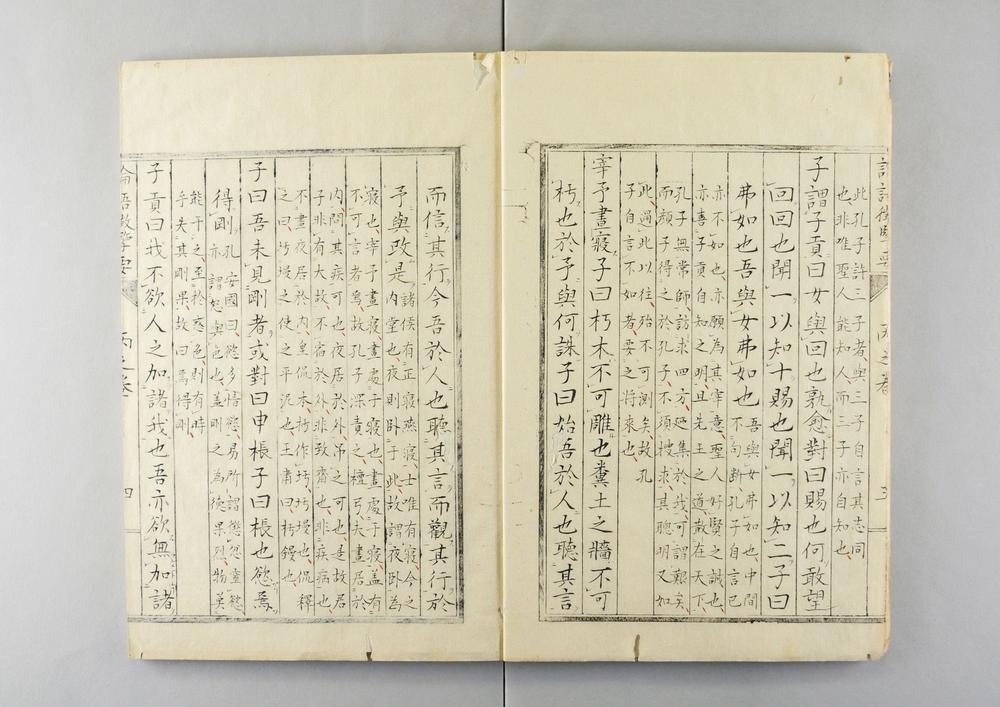 此孔子許三子者與三子自言其志同
也非唯聖人能知人而三子亦自知也
子謂子貢曰女與回也孰愈對曰賜也何敢望
回回也聞一以知十賜也聞一以知二子曰
弗如也吾與女弗如也
吾與女弗如也中間
不句斷孔子自言已
亦不如也亦願為其宰意聖人好賢之誠也
亦善子貢自知之明且先王之道散在天下
孔子無常師訪求四方延集於我可謂艱矣
而顏子得之於孔子不須搜求其聰明又如
此過此以往殆不可測矣故孔
子自言不如者要之將來也
宰予晝寢子曰朽木不可雕也糞土之牆不可
杇也於予與何誅子曰始吾於人也聽其言
而信其行今吾於人也聽其言而觀其行於
予與改是
諸侯有正寢燕寢士唯有寢今之
内堂也夜則卧于此故謂夜卧為
寢也宰予晝寢晝處于寢也晝處于寢盖有
不可言者焉故孔子深責之檀弓夫晝居於
内問其疾可也夜居於外弔之可也是故君
子非有大故不宿於外非致齋也非疾病也
不晝夜居於内皇侃本杇作圬圬墁也侃釋
之曰圬墁之使之平泥也王肅曰杇鏝也
子曰吾未見剛者或對曰申棖子曰棖也慾焉
得剛
孔安國曰慾多情慾易所謂懲忿窒慾
亦謂怒與色也盖剛之為德果烈物莫
能干之至於惑色則有時
乎失其剛果故曰焉得剛
子貢曰我不欲人之加諸我也吾亦欲無加諸
四